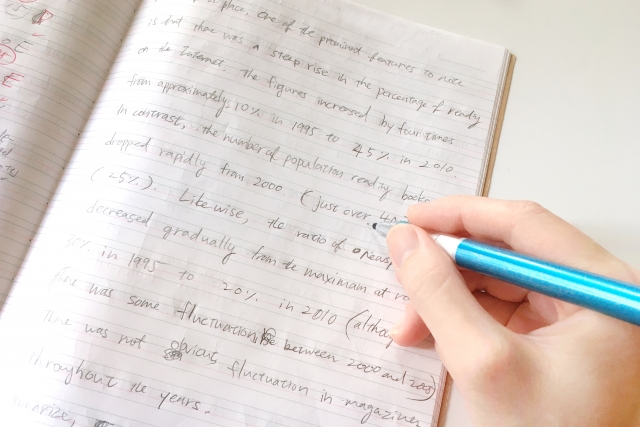 place, One of the prominent features to note
is that there was a steep rise in the percentage of ready
on the Internet. The figures increased by four times
from approximately 10% in 1995 to 45% in 2010.
In contrast, the number of population reading books
dropped rapidly from 2000 (just over
(25%). Likewise, the ratio of
decreased gradually from the maximam at
in 1995 to 20% in 2010 (althou
was some fluctuation between 2000 and 2005)
There was not obvious fluctuation in magazines
throughout the years.